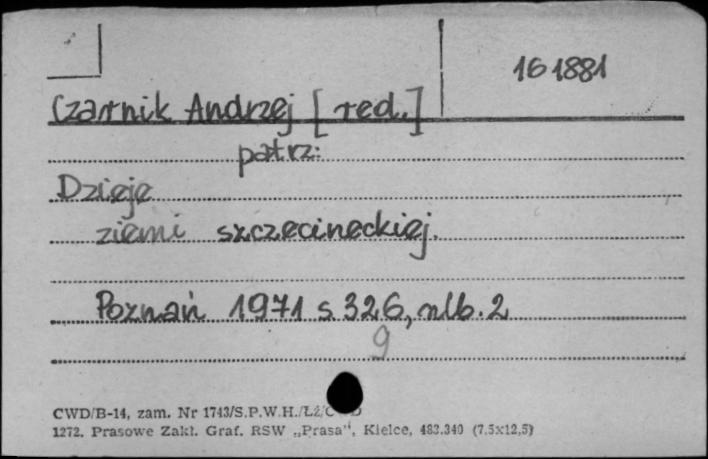 161881
Czarnik Andrzej [red.]
patrz:
Dzieje
ziemi szczecineckiej.
Poznań 1971 s. 326, nlb. 2
9
CWD/B-14, zam. Nr 1743/S.P.W.H./ŁŻ/C D
1272. Prasowe Zakł. Graf. RSW „Prasa", Kielce, 483.340 (7,5x12,5)